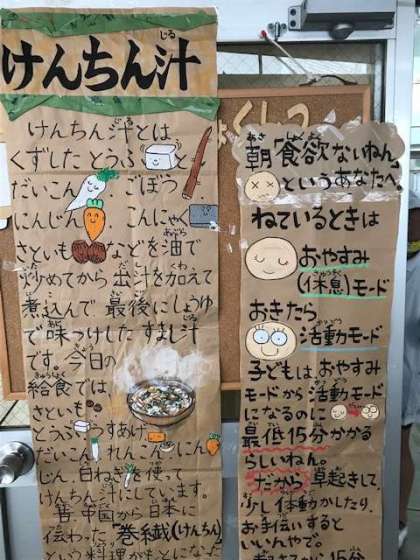 けんちん汁
じる
けんちん汁とは
くずした とうふ と
だいこん ごぼう
にんじん こんにゃく
さといも などを油で
炒めてから 出汁を加えて
煮込んで 最後にしょうゆ
で味つけした すまし汁
です。今日の
給食では
さといも
とうふ うすあげ
だいこん れんこん にん
じん、白ねぎを使って
けんちん汁にしています。
昔 中国から 日本に
伝わった 「巻繊(けんちん)
という料理がもとになっ
朝「食欲ないねん」
というあなたへ。
ねているときは
おやすみ
(休息)モード
おきたら
活動モード
子どもは、おやすみ
モードから 活動モード
になるのに
最低15分かかる
らしいねん。
だから 早起きして、
少し体動かしたり、
お手伝いすると
いいんやで。